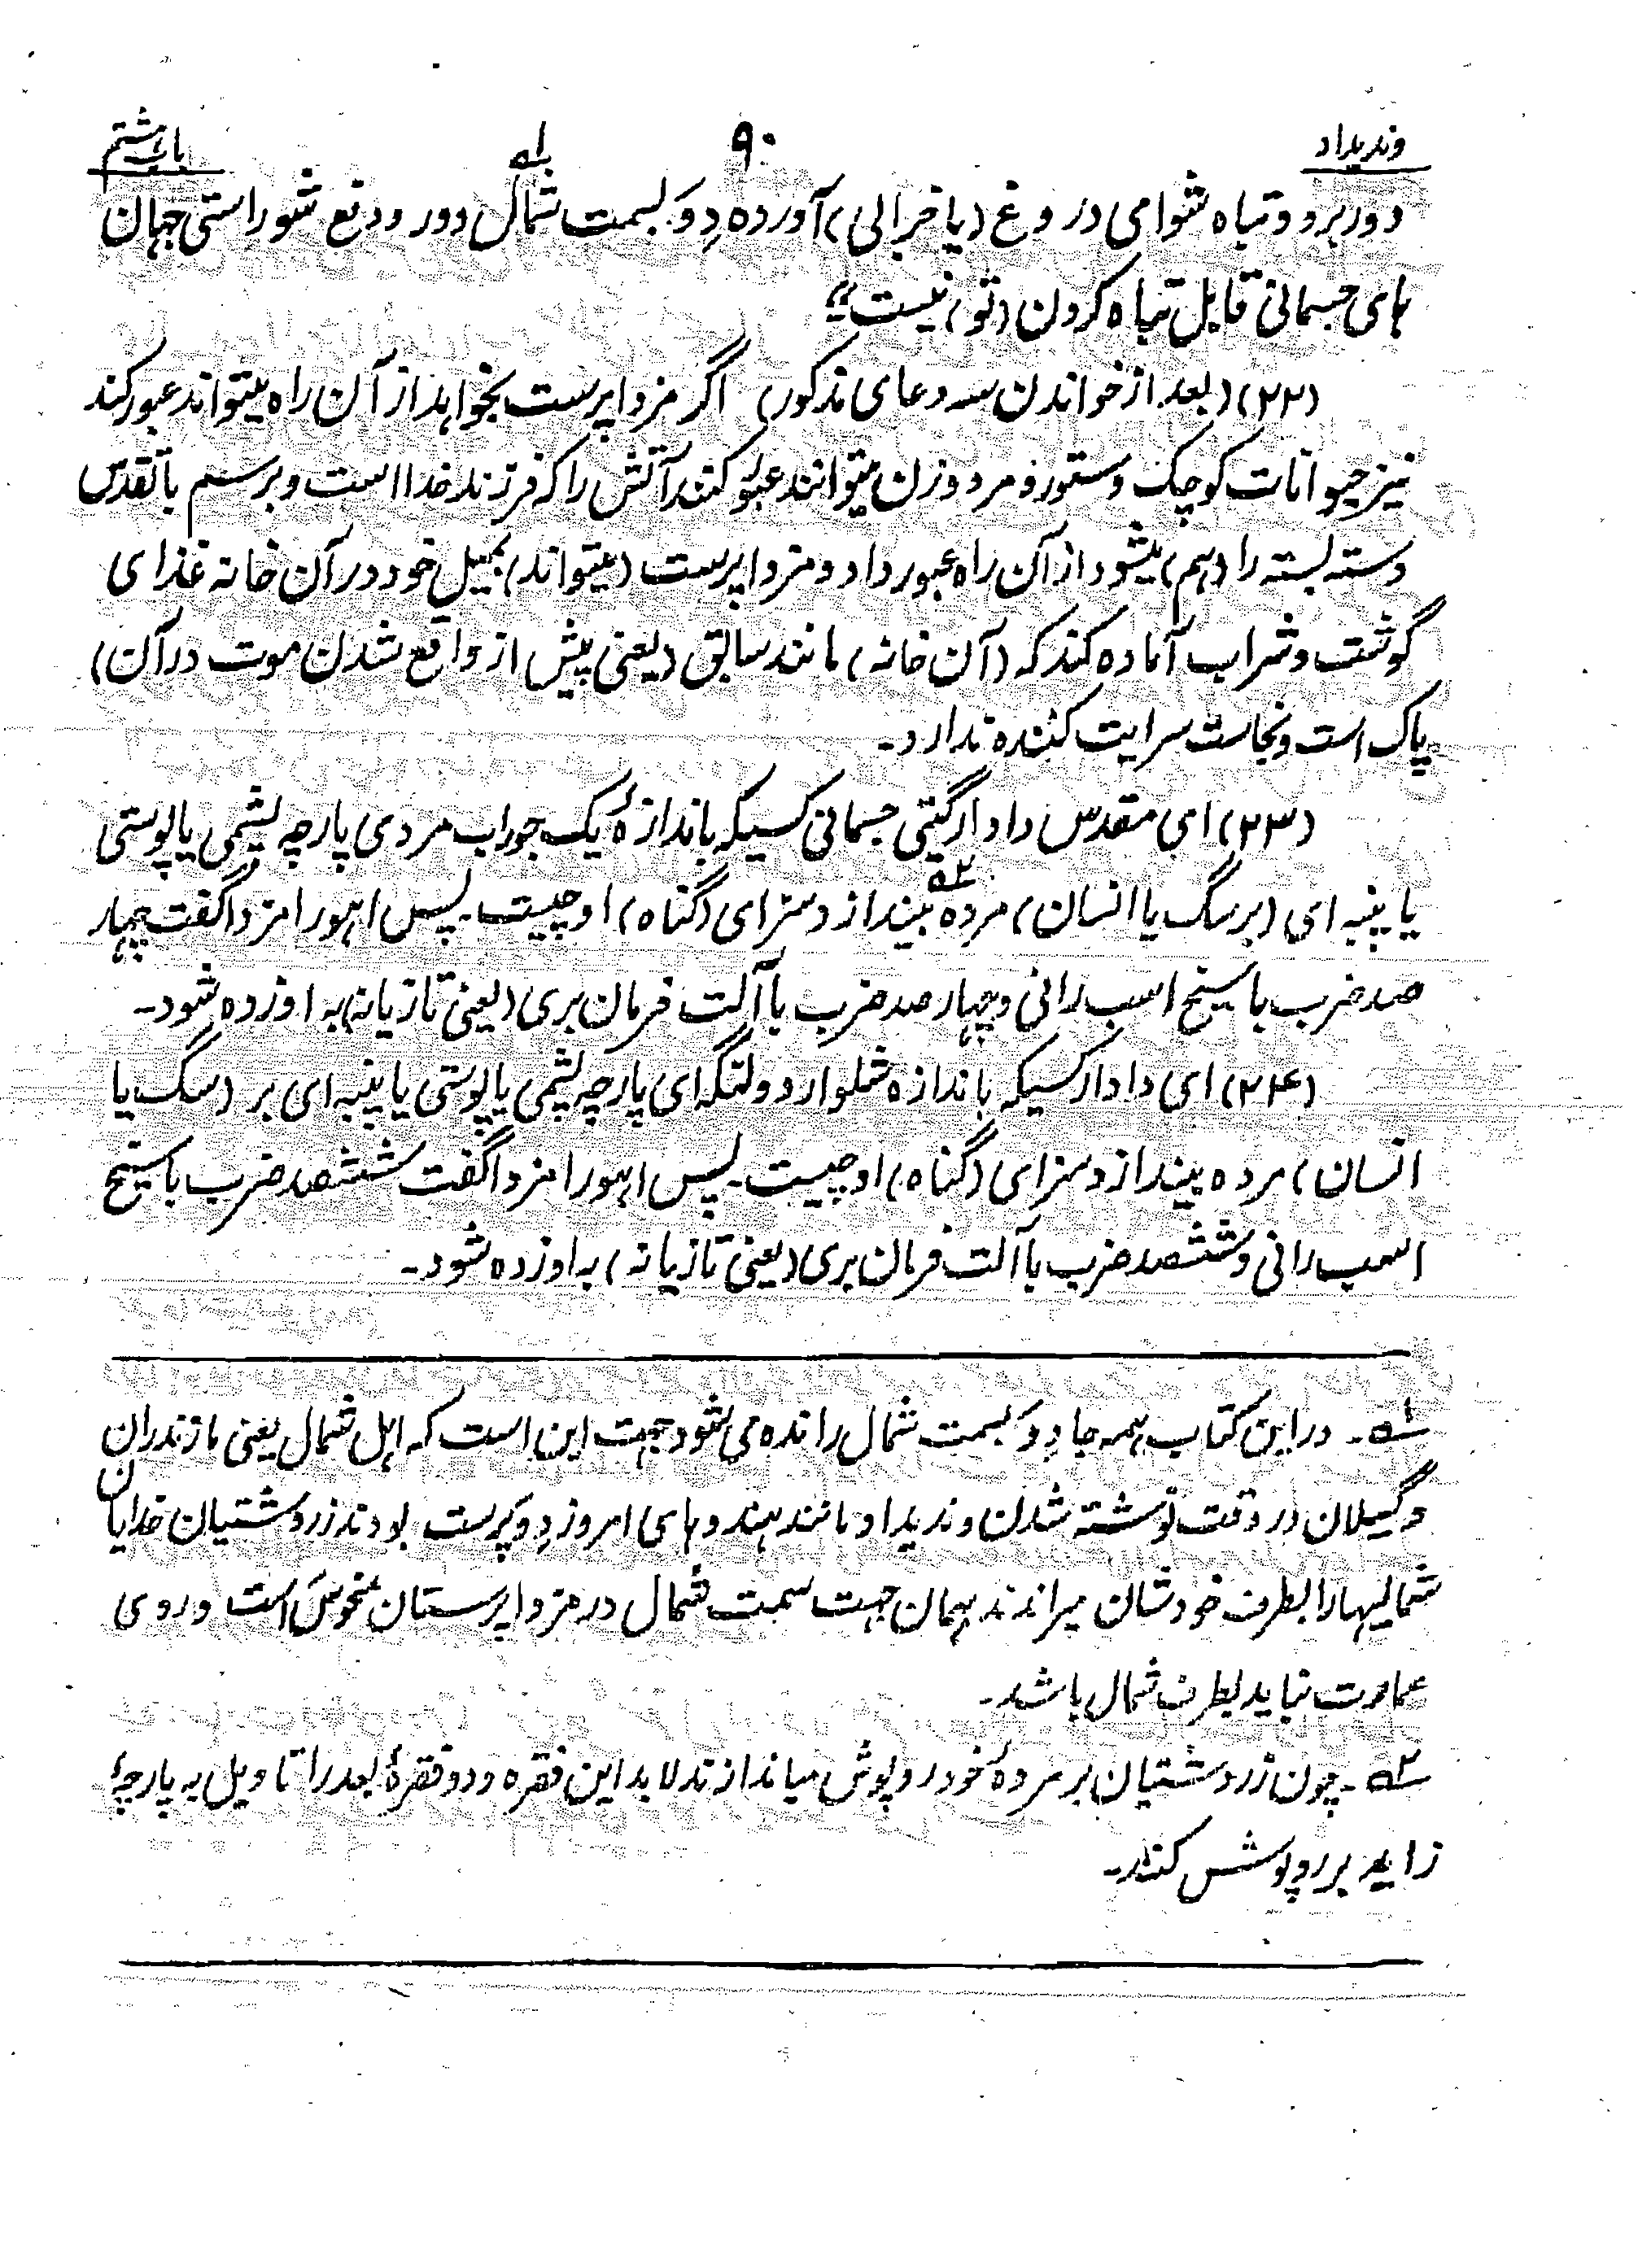 وندیداد ۹۰ باب هشتم
دور برو و تباه شو ای دروغ (یا خرابی) آورده دِوَ بسمت شمال له۱ دور و دفع شو راستی جهان
های جسمانی قابل تباه کردن (تو) نیست"
(۲۲) (بعد از خواندن سه دعای مذکور) اگر مزداپرست بخواهد از آن راه میتواند عبور کند
نیز حیوانات کوچک و ستور و مرد و زن میتوانند عبور کنند آتش را که فرزند خدا است و برسم با تقدس
دسته بسته را (هم) میشود از آن راه عبور داد و مزداپرست (میتواند) بمیل خود در آن خانه غذای
گوشت و شراب آماده کند که (آن خانه) مانند سابق (یعنی پیش از واقع شدن موت در آن)
پاک است و نجاست سرایت کننده ندارد-
(۲۳) ای مقدس دادار گیتی جسمانی کسیکه باندازهٔ یک جوراب مردی پارچه پشمی یا پوستی
یا پنبه ای (بر سگ یا انسان) مرده له۲ بیندازد سزای (گناه) او چیست- پس اهورامزدا گفت چهار
صد ضرب با سیخ اسب رانی و چهار صد ضرب با آلت فرمان بری (یعنی تازیانه) به او زده شود-
(۲۴) ای دادار کسیکه باندازه شلوار دو لنگه ای پارچه پشمی یا پوستی یا پنبه ای بر (سگ یا
انسان) مرده بیندازد سزای (گناه) او چیست- پس اهورامزدا گفت ششصد ضرب با سیخ
اسب رانی و ششصد ضرب با آلت فرمان بری (یعنی تازیانه) به او زده شود-
له۱- در این کتاب همه جا دِوَ بسمت شمال رانده می شود جهت این است که اهل شمال یعنی مازندران
و گیلان در وقت نوشته شدن وندیداد مانند هندوهای امروز دِوَپرست بودند زردشتیان خدایان
شمالیها را بطرف خودشان میراندند بهمان جهت سمت شمال در مزداپرستان منحوس است و روی
عمارت نباید بطرف شمال باشد-
له۲- چون زردشتیان بر مردهٔ خود روپوش میاندازند لابد این فقره و دو فقرهٔ بعد را تاویل به پارچهٔ
زاید بر روپوش کنند-